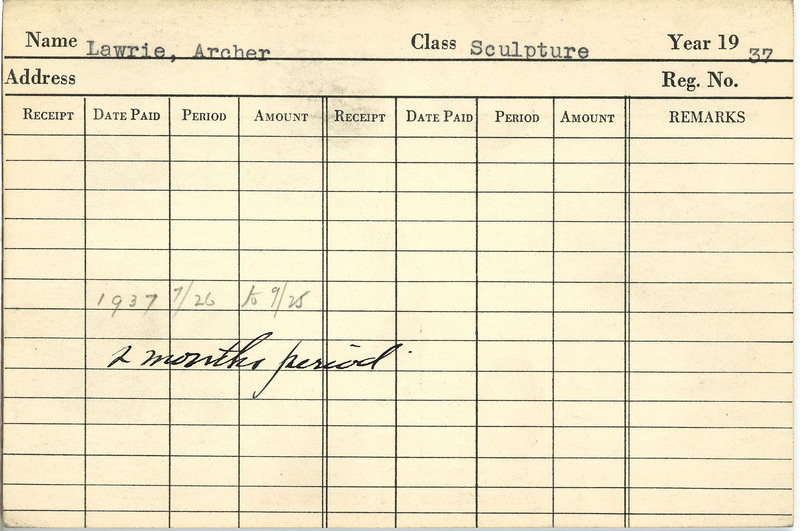 Name Lawrie, Archer Class Sculpture Year 19 37
Address Reg. No.
RECEIPT DATE PAID PERIOD AMOUNT RECEIPT DATE PAID PERIOD AMOUNT REMARKS
1937 7/26 to 9/25
2 months period